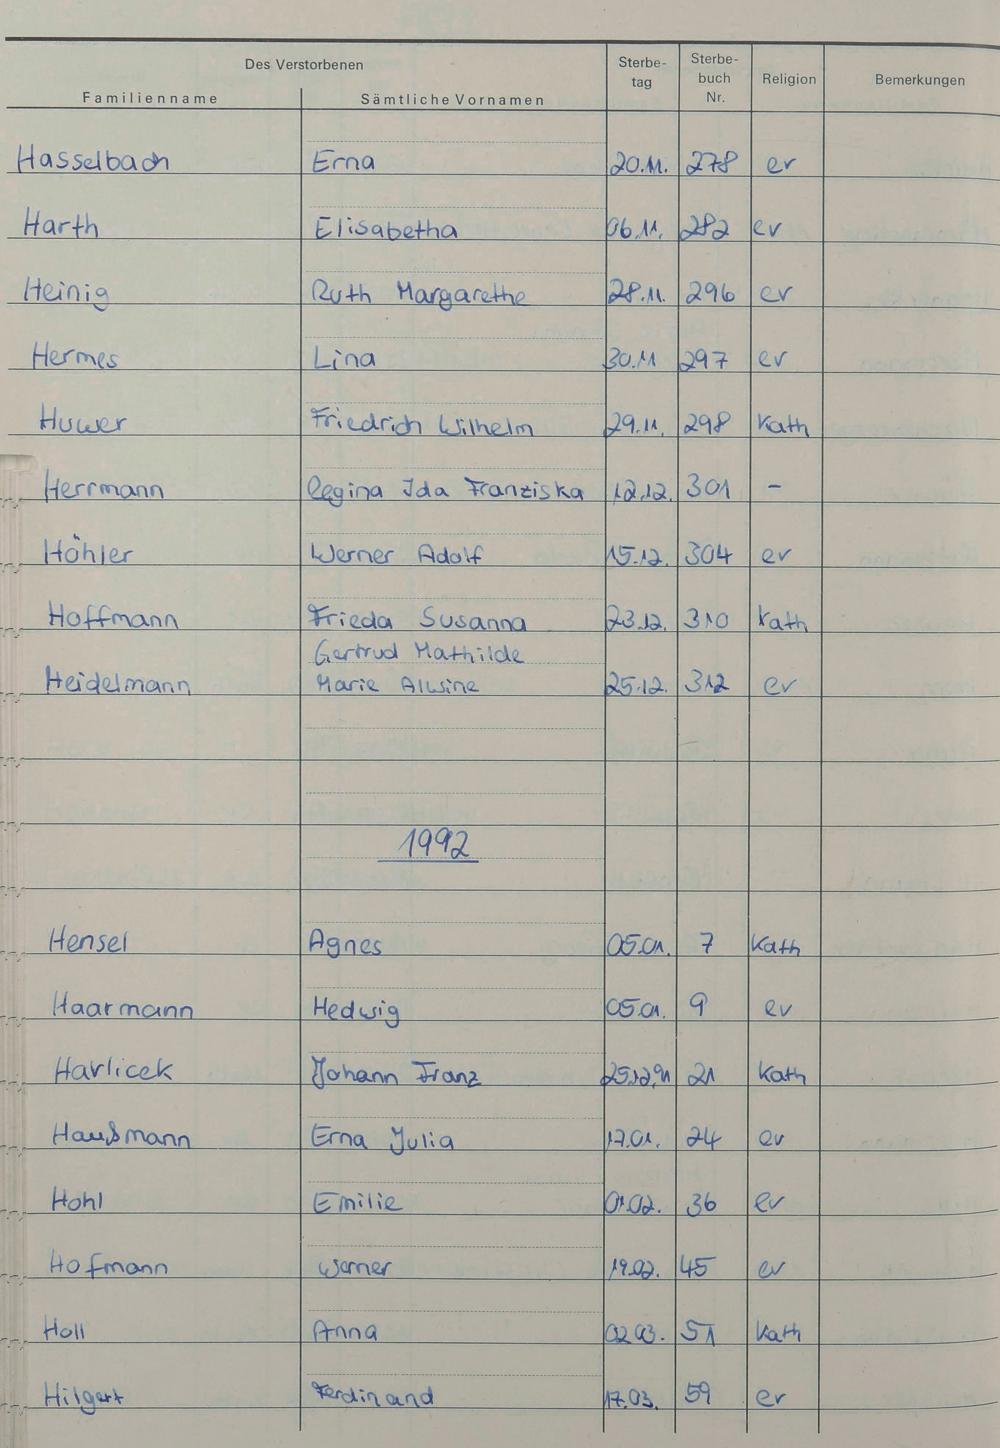 Des Verstorbenen
Familienname Sämtliche Vornamen Sterbe-tag Sterbe-buch Nr. Religion Bemerkungen
Hasselbach Erna 20.11. 278 ev
Harth Elisabetha 06.11. 282 ev
Heinig Ruth Margarethe 28.11. 296 ev
Hermes Lina 30.11 297 ev
Huwer Friedrich Wilhelm 29.11. 298 Kath
Herrmann Regina Ida Franziska 12.12. 301 -
Höhler Werner Adolf 15.12. 304 ev
Hoffmann Frieda Susanna 23.12. 310 Kath
Gertrud Mathilde
Heidelmann Marie Alwine 25.12. 312 ev
1992
Hensel Agnes 05.01. 7 Kath
Haarmann Hedwig 05.01. 9 ev
Havlicek Johann Franz 25.12.91 21 Kath
Haußmann Erna Julia 17.01. 24 ev
Hohl Emilie 01.02. 36 ev
Hofmann Werner 19.02. 45 ev
Holl Anna 02.03. 51 Kath
Hilgert Ferdinand 17.03. 59 ev